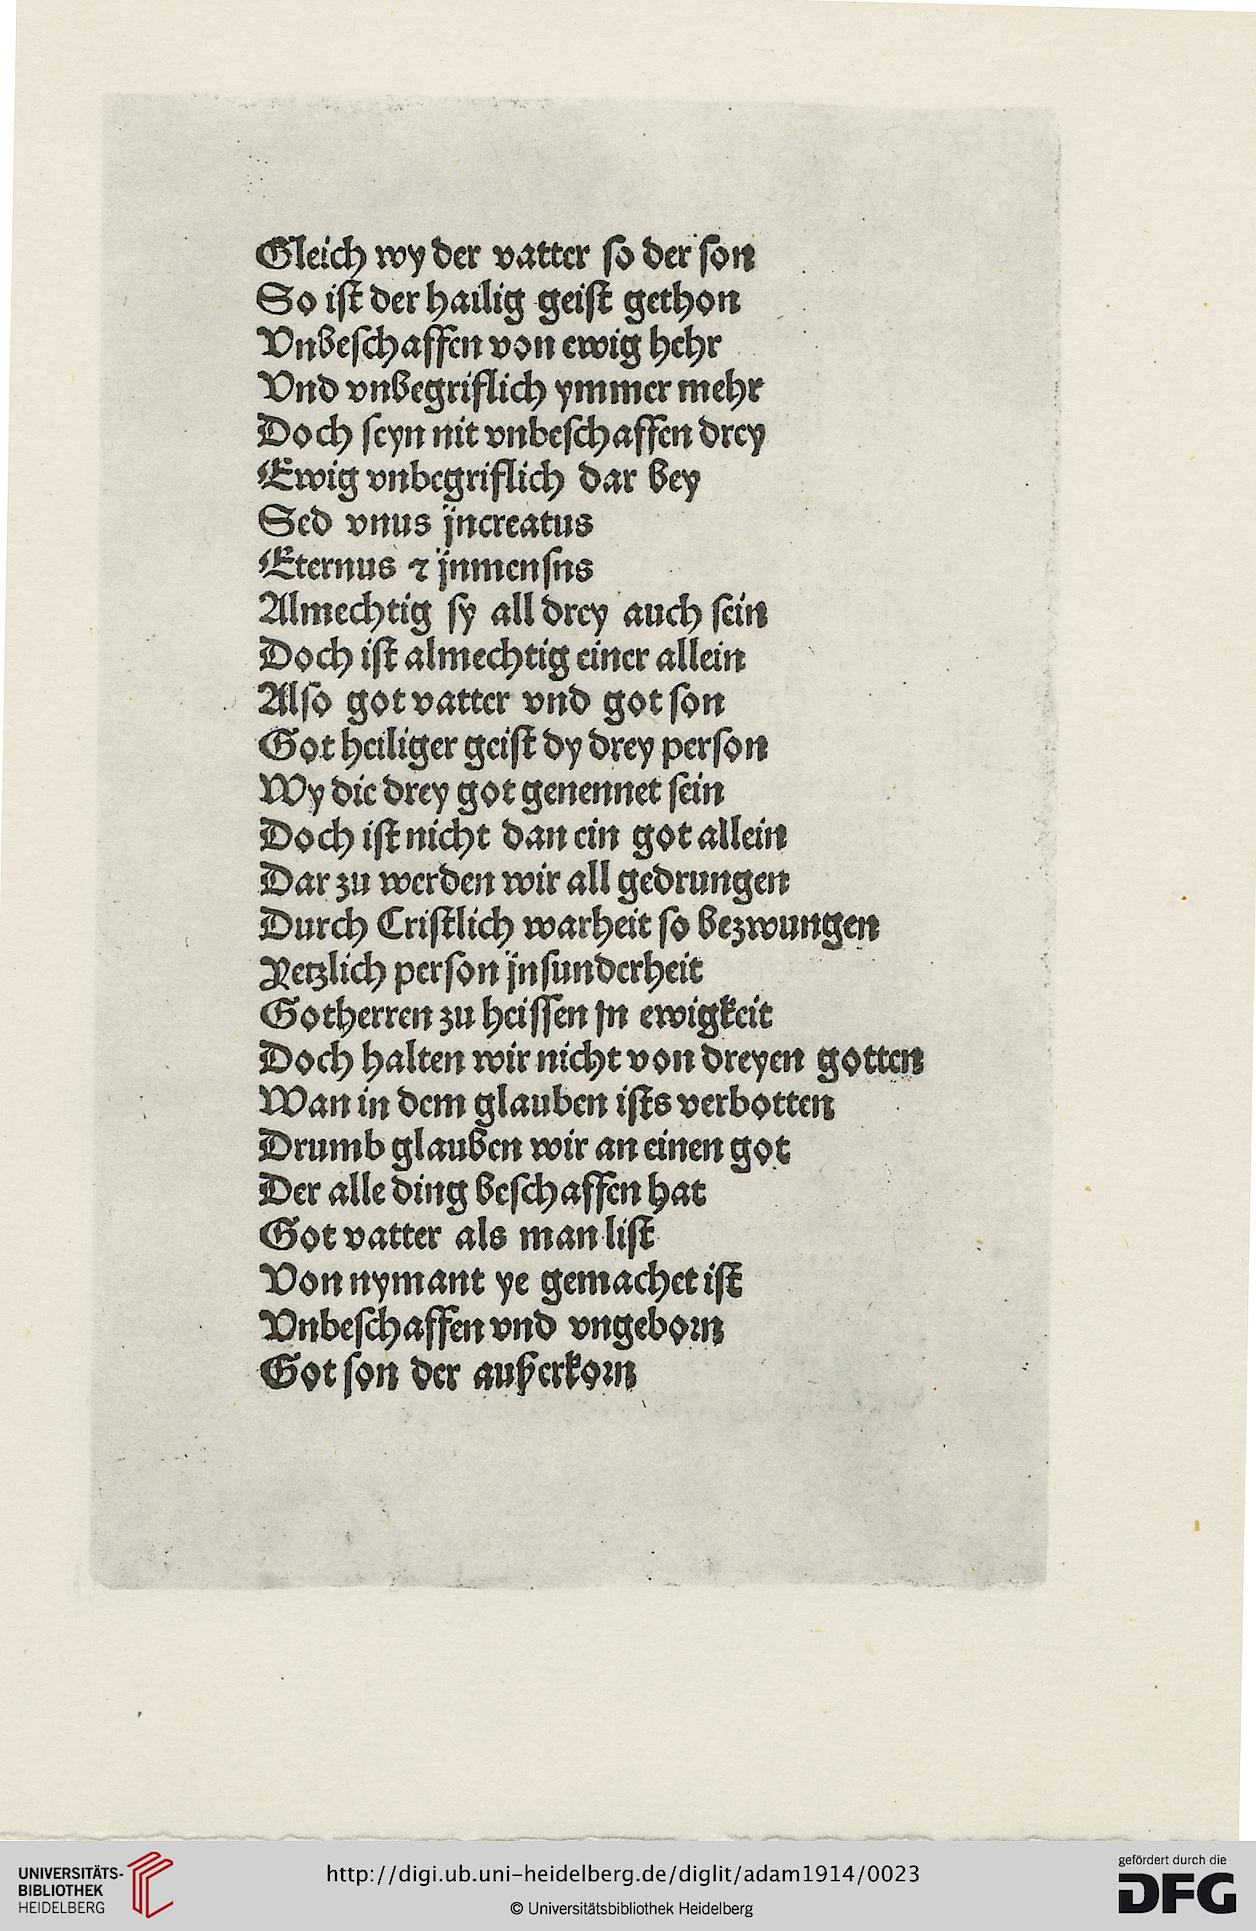 Gleich wy der vatter so der son
So ist der hailig geist gethon
Vnbeschaffen von ewig hehr
Vnd vnbegriflich ymmer mehr
Doch seyn nit vnbeschaffen drey
Ewig vnbegriflich dar bey
Sed vnus jncreatus
Eternus ⁊ jnmensns
Almechtig sy all drey auch sein
Doch ist almechtig einer allein
Also got vatter vnd got son
Got heiliger geist dy drey person
Wy die drey got genennet sein
Doch ist nicht dan ein got allein
Dar zu werden wir all gedrungen
Durch Cristlich warheit so bezwungen
Yetzlich person jnsunderheit
Gotherren zu heissen jn ewigkeit
Doch halten wir nicht von dreyen gotten
Wan in dem glauben ists verbotten
Drumb glauben wir an einen got
Der alle ding beschaffen hat
Got vatter als man list
Von nymant ye gemachet ist
Vnbeschaffen vnd vngeborn
Got son der außerkorn
UNIVERSITÄTS-
BIBLIOTHEK
HEIDELBERG
http://digi.ub.uni-heidelberg.de/diglit/adam1914/0023
© Universitätsbibliothek Heidelberg
gefördert durch die
DFG